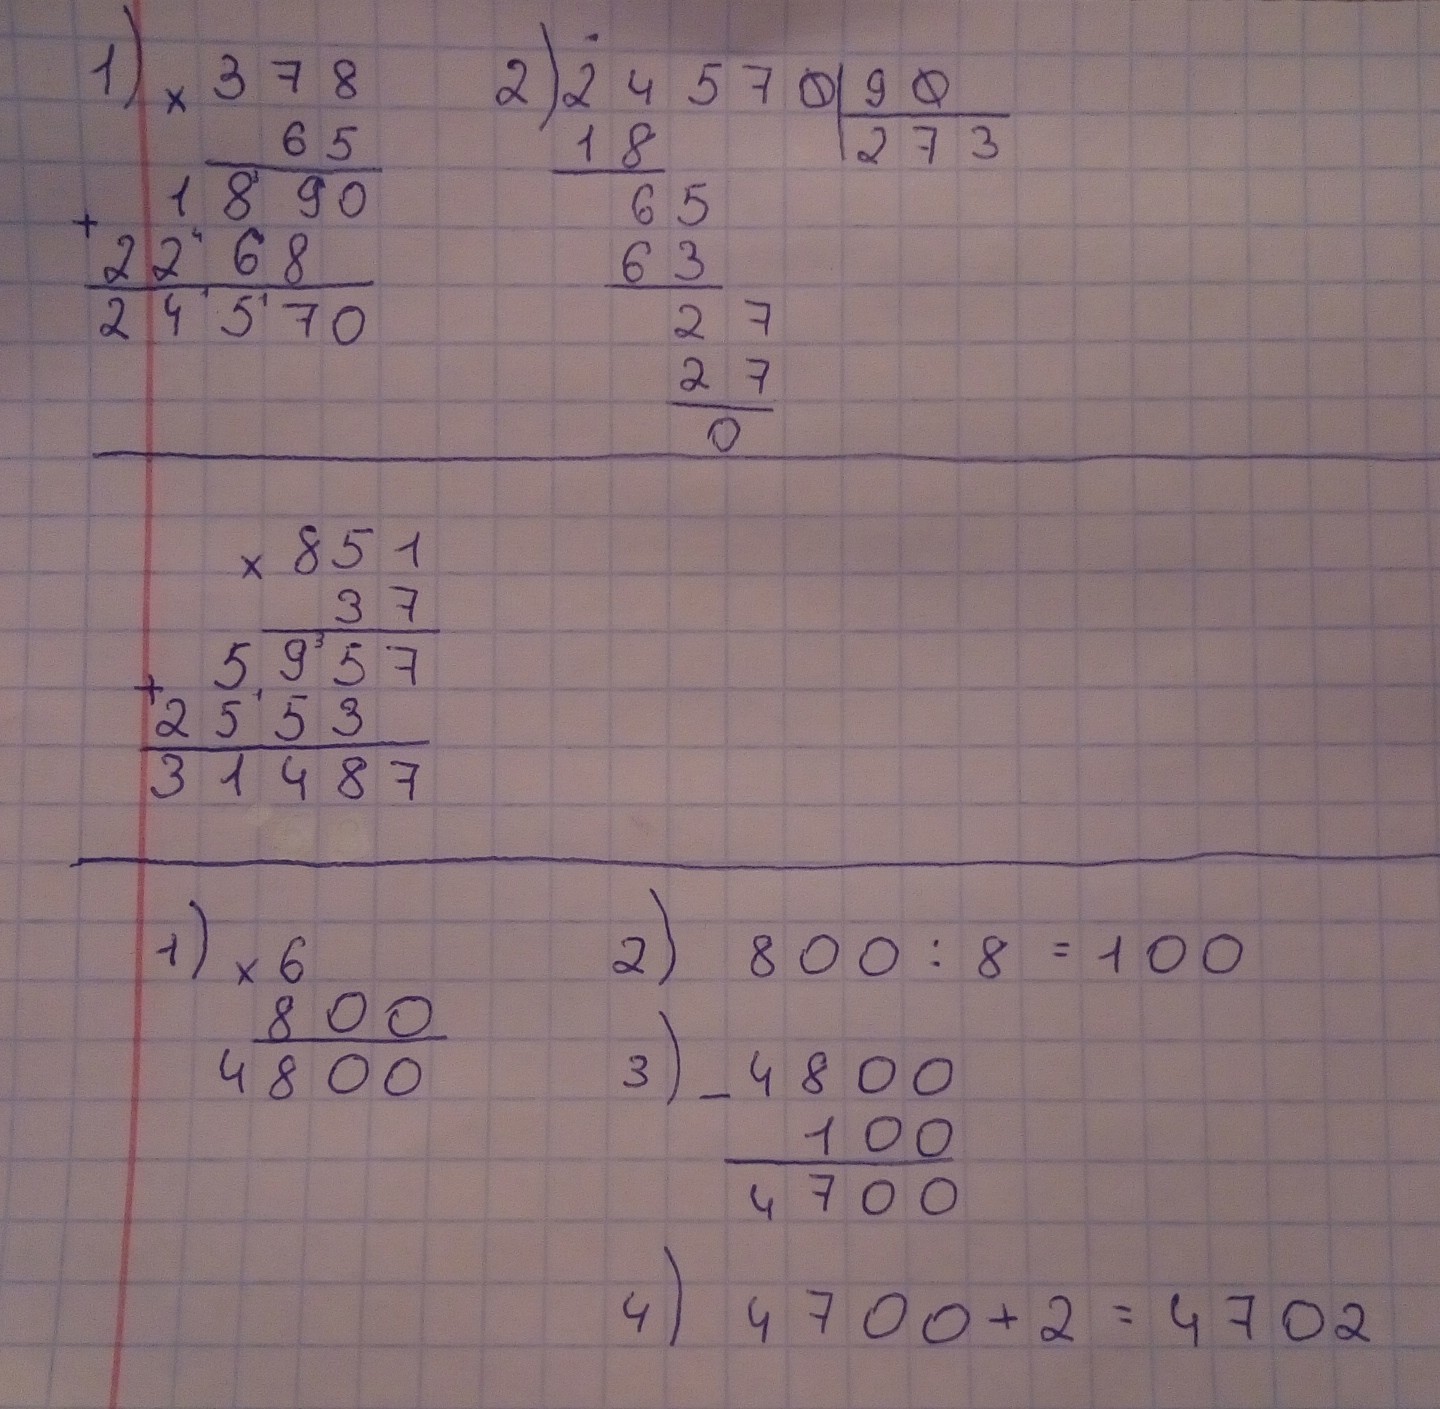 1) × 378
65
1890
+
2268
24570
2) 24570 | 90
18 | 273
65
63
27
27
0
× 851
37
5957
+
2553
31487
1) × 6
800
4800
2) 800 : 8 = 100
3) - 4800
100
4700
4) 4700 + 2 = 4702